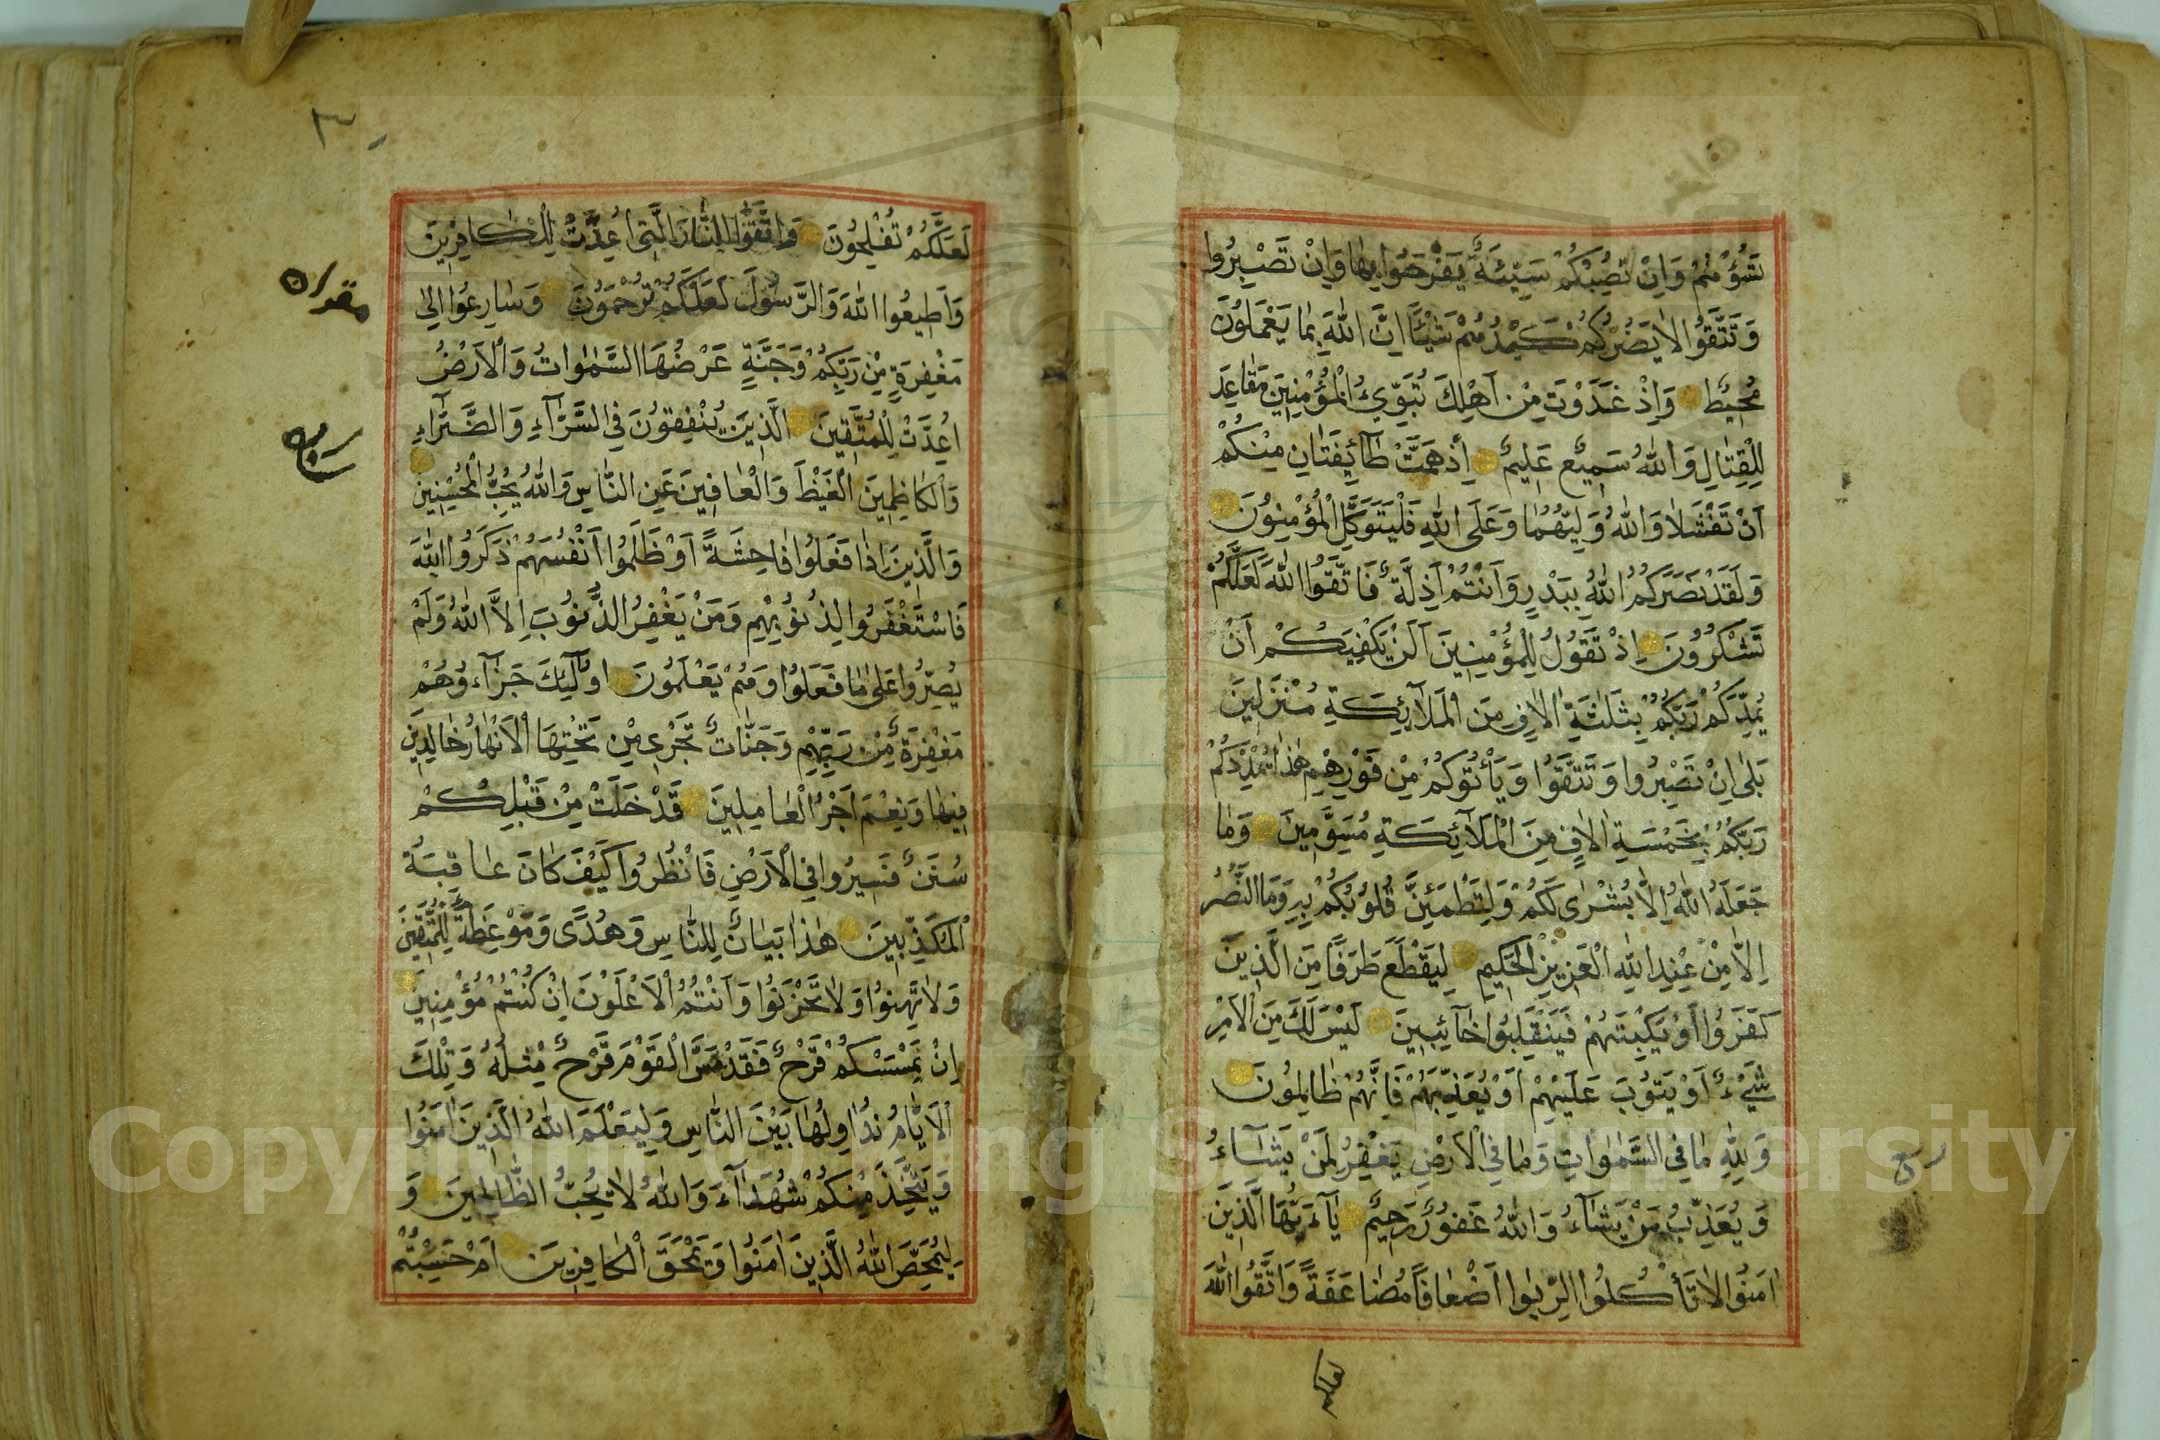 تَسُؤْهُمْ وَاِنْ تُصِبْكُمْ سَيِّئَةٌ يَفْرَحُوا بِهَا وَاِنْ تَصْبِرُوا
وَتَتَّقُوا لَا يَضُرُّكُمْ كَيْدُهُمْ شَيْئًا اِنَّ اللّٰهَ بِمَا يَعْمَلُونَ
مُحِيطٌ وَاِذْ غَدَوْتَ مِنْ اَهْلِكَ تُبَوِّئُ الْمُؤْمِنِينَ مَقَاعِدَ
لِلْقِتَالِ وَاللّٰهُ سَمِيعٌ عَلِيمٌ اِذْ هَمَّتْ طَآئِفَتَانِ مِنْكُمْ
اَنْ تَفْشَلَا وَاللّٰهُ وَلِيُّهُمَا وَعَلَى اللّٰهِ فَلْيَتَوَكَّلِ الْمُؤْمِنُونَ
وَلَقَدْ نَصَرَكُمُ اللّٰهُ بِبَدْرٍ وَاَنْتُمْ اَذِلَّةٌ فَاتَّقُوا اللّٰهَ لَعَلَّكُمْ
تَشْكُرُونَ اِذْ تَقُولُ لِلْمُؤْمِنِينَ اَلَنْ يَكْفِيَكُمْ اَنْ
يُمِدَّكُمْ رَبُّكُمْ بِثَلٰثَةِ اٰلَافٍ مِنَ الْمَلَآئِكَةِ مُنْزَلِينَ
بَلٰى اِنْ تَصْبِرُوا وَتَتَّقُوا وَيَأْتُوكُمْ مِنْ فَوْرِهِمْ هٰذَا يُمْدِدْكُمْ
رَبُّكُمْ بِخَمْسَةِ اٰلَافٍ مِنَ الْمَلَآئِكَةِ مُسَوِّمِينَ وَمَا
جَعَلَهُ اللّٰهُ اِلَّا بُشْرٰى لَكُمْ وَلِتَطْمَئِنَّ قُلُوبُكُمْ بِهِ وَمَا النَّصْرُ
اِلَّا مِنْ عِنْدِ اللّٰهِ الْعَزِيزِ الْحَكِيمِ لِيَقْطَعَ طَرَفًا مِنَ الَّذِينَ
كَفَرُوا اَوْ يَكْبِتَهُمْ فَيَنْقَلِبُوا خَآئِبِينَ لَيْسَ لَكَ مِنَ الْاَمْرِ
شَيْءٌ اَوْ يَتُوبَ عَلَيْهِمْ اَوْ يُعَذِّبَهُمْ فَاِنَّهُمْ ظَالِمُونَ
وَلِلّٰهِ مَا فِي السَّمٰوَاتِ وَمَا فِي الْاَرْضِ يَغْفِرُ لِمَنْ يَشَآءُ
وَيُعَذِّبُ مَنْ يَشَآءُ وَاللّٰهُ غَفُورٌ رَحِيمٌ يَآءَيُّهَا الَّذِينَ
اٰمَنُوا لَا تَأْكُلُوا الرِّبٰوا اَضْعَافًا مُضَاعَفَةً وَاتَّقُوا اللّٰهَ
لعلكم
ربع
٣٠
لَعَلَّكُمْ تُفْلِحُونَ وَاتَّقُوا النَّارَ الَّتِى اُعِدَّتْ لِلْكَافِرِينَ
وَاَطِيعُوا اللّٰهَ وَالرَّسُولَ لَعَلَّكُمْ تُرْحَمُونَ وَسَارِعُوا اِلٰى
مَغْفِرَةٍ مِنْ رَبِّكُمْ وَجَنَّةٍ عَرْضُهَا السَّمٰوَاتُ وَالْاَرْضُ
اُعِدَّتْ لِلْمُتَّقِينَ الَّذِينَ يُنْفِقُونَ فِي السَّرَّآءِ وَالضَّرَّآءِ
وَالْكَاظِمِينَ الْغَيْظَ وَالْعَافِينَ عَنِ النَّاسِ وَاللّٰهُ يُحِبُّ الْمُحْسِنِينَ
وَالَّذِينَ اِذَا فَعَلُوا فَاحِشَةً اَوْ ظَلَمُوا اَنْفُسَهُمْ ذَكَرُوا اللّٰهَ
فَاسْتَغْفَرُوا لِذُنُوبِهِمْ وَمَنْ يَغْفِرُ الذُّنُوبَ اِلَّا اللّٰهُ وَلَمْ
يُصِرُّوا عَلٰى مَا فَعَلُوا وَهُمْ يَعْلَمُونَ اُولٰٓئِكَ جَزَآءُوهُمْ
مَغْفِرَةٌ مِنْ رَبِّهِمْ وَجَنَّاتٌ تَجْرِى مِنْ تَحْتِهَا الْاَنْهَارُ خَالِدِينَ
فِيهَا وَنِعْمَ اَجْرُ الْعَامِلِينَ قَدْ خَلَتْ مِنْ قَبْلِكُمْ
سُنَنٌ فَسِيرُوا فِي الْاَرْضِ فَانْظُرُوا كَيْفَ كَانَ عَاقِبَةُ
الْمُكَذِّبِينَ هٰذَا بَيَانٌ لِلنَّاسِ وَهُدًى وَمَوْعِظَةٌ لِلْمُتَّقِينَ
وَلَا تَهِنُوا وَلَا تَحْزَنُوا وَاَنْتُمُ الْاَعْلَوْنَ اِنْ كُنْتُمْ مُؤْمِنِينَ
اِنْ يَمْسَسْكُمْ قَرْحٌ فَقَدْ مَسَّ الْقَوْمَ قَرْحٌ مِثْلُهُ وَتِلْكَ
الْاَيَّامُ نُدَاوِلُهَا بَيْنَ النَّاسِ وَلِيَعْلَمَ اللّٰهُ الَّذِينَ اٰمَنُوا
وَيَتَّخِذَ مِنْكُمْ شُهَدَآءَ وَاللّٰهُ لَا يُحِبُّ الظَّالِمِينَ وَ
لِيُمَحِّصَ اللّٰهُ الَّذِينَ اٰمَنُوا وَيَمْحَقَ الْكَافِرِينَ اَمْ حَسِبْتُمْ
Copyright © King Saud University